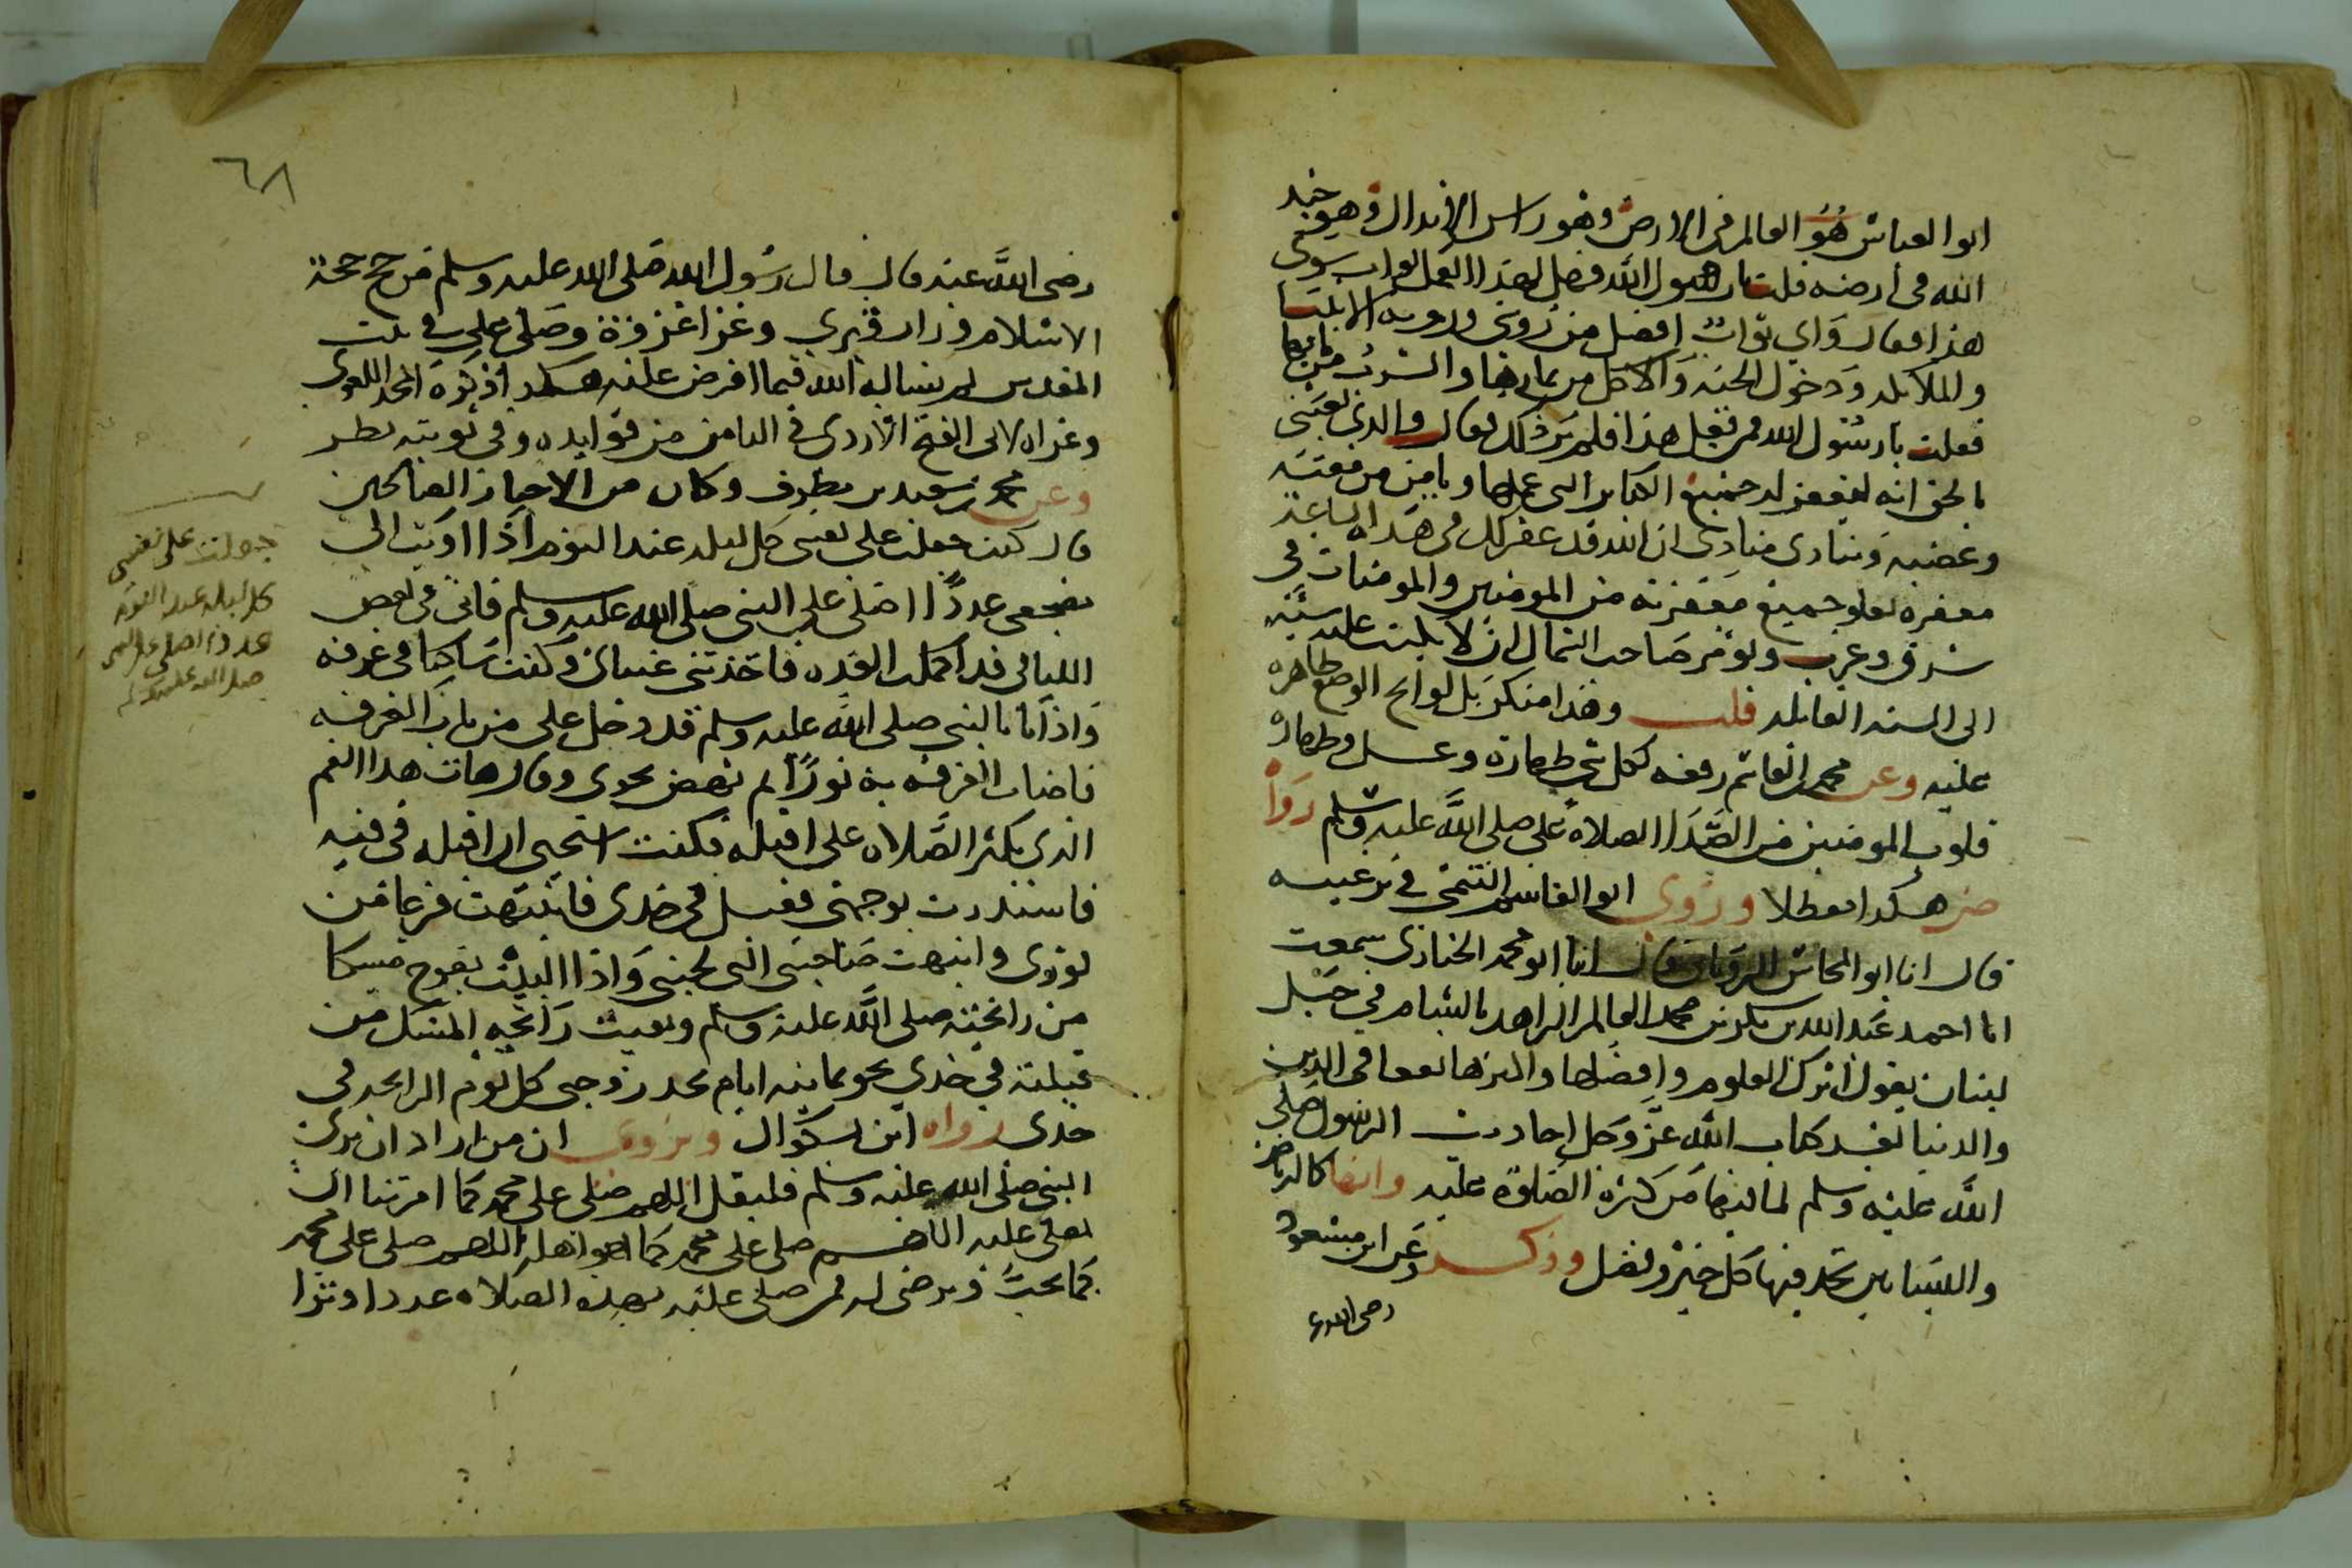 ابوا العباس هُوَ العالم في الارض وهو راس الابدال وهو من جند
الله في ارضه قلت يا رسول الله فهل لهذا العمل ثواب سوى
هذا فقال واي ثواب افضل من رويتي وروية الانبيا
والملايكة ودخول الجنة والاكل من ثمارها والشرب من مايها
فقلت يا رسول الله فمن فعل هذا فلم ير ذلك فقال والذي بعثني
بالحق انه ليغفر له جميع الكباير التي عملها ويامن من مقته
وغضبه وينادي منادي ان الله قد غفر لك في هذه الساعة
مغفره تعلو جميع مغفرته من المومنين والمومنات في
شرق وغرب ويومر صاحب الشمال ان لا يكتب عليه سيئه
الى السنه القابله قلت وهذا منكر بل لوايح الوضع ظاهره
عليه وعن محمد بن القاسم رفعه لكل شي طهارة وغسل وطهاره
قلوب المومنين من الصدا الصلاة علي صلى الله عليه وسلم رواه
هكذا معضلا وروى ابو القاسم التيمي في ترغيبه
قال انا ابو المحاسن الروياني قال انبا ابو محمد الخبازي سمعت
ابا احمد عبد الله بن بكر بن محمد العالم الزاهد بالشام في جبل
لبنان يقول ابرك العلوم وافضلها واكثرها نفعا في الدين
والدنيا بعد كتاب الله عز وجل احاديث الرسول صلى
الله عليه وسلم لما فيها من كثرة الصلوة عليه وانها كالرياض
والبساتين تجد فيها كل خير وفضل وذكر عن ابن مسعود
رضى الله ع
٦٨
رضى الله عنه قال قال رسول الله صلى الله عليه وسلم من حج حجة
الاسلام وزار قبري وغزا غزوة وصلى علي في بيت
المقدس لم يساله الله فيما افرض عليه هكذا ذكره المجد اللغوى
وعزاه لابى الفتح الازدي في الثامن من فوايده وفي ثبوته نظر
وعن محمد بن سعيد بن مطرف وكان من الاخيار الصالحين
قال كنت جعلت على نفسي كل ليله عند النوم اذا اويت الى
مضجعى عددًا اصلى على النبي صلى الله عليه وسلم فاني في بعض
الليالى قد اكملت العده فاخذتني عيناى وكنت ساكنا في غرفه
واذا انا بالنبي صلى الله عليه وسلم قد دخل علي من باب الغرفه
فاضات الغرفه به نورًا ثم نهض نحوى وقال هات هذا الفم
الذي يكثر الصلاه على اقبله فكنت استحيى ان اقبله في فيه
فاستدرت بوجهي فقبل في خدى فانتبهت فزعا من
فورى وانبهت صاحبتي التى بجنبي واذا البيت يفوح مسكا
من رائحته صلى الله عليه وسلم وبقيت رائحه المسك من
قبلته في خدى نحو ثمانيه ايام تجد زوجتى كل يوم الرائحه في
خدى رواه ابن بشكوال ويروى ان من اراد ان يرى
النبي صلى الله عليه وسلم فليقل اللهم صلى على محمد كما امرتنا ان
نصلي عليه اللهم صلى على محمد كما هو اهله اللهم صلى على محمد
كما تحب وترضى له فمن صلى عليه بهذه الصلاه عددا وترا
جعلت على نفسي
كل ليله عند النوم
عددا اصلي على النبي
صلى الله عليه وسلم